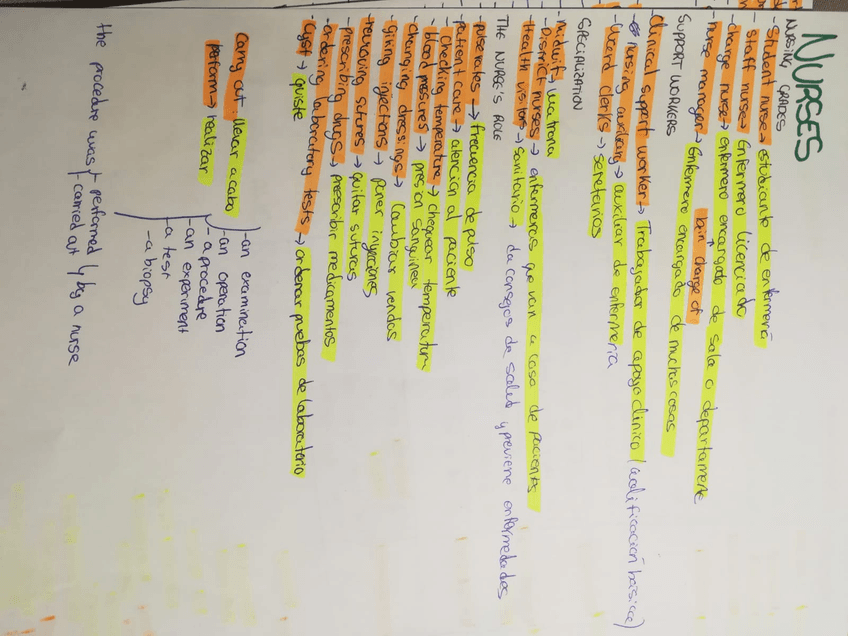 NURSES
NURSING GRADES
- Student nurse → estudiante de enfermería
- Staff nurse → Enfermero licenciado
- charge nurse → enfermero encargado de sala o departamente
be in charge of
- nurse manager → Enfermero encargado de muchas cosas
SUPPORT WORKERS
- Clinical support worker → Trabajador de apoyo clínico (cualificación básica)
- nursing auxiliary → auxiliar de enfermería
- Ward clerks → secretarios
SPECIALIZATION
- midwife → matrona
- District nurses → enfermeros que van a casa de pacientes
- Health visitors → sanitario → da consejos de salud y previene enfermedades
THE NURSE'S ROLE
- pulse rates → frecuencia de pulso
- patient care → atencion al paciente
- checking temperature → chequear temperatura
- blood pressures → presion sanguinea
- changing dressings → Cambiar vendas
- giving injections → poner inyecciones
- removing sutures → quitar suturas
- prescribing drugs → prescribir medicamentos
- ordering laboratory tests → ordenar pruebas de laboratorio
- Cyst → quiste
Carry out: llevar a cabo
perform → realizar
- an examination
- an operation
- a procedure
- an experiment
- a test
- a biopsy
the procedure was performed by a nurse
carried out